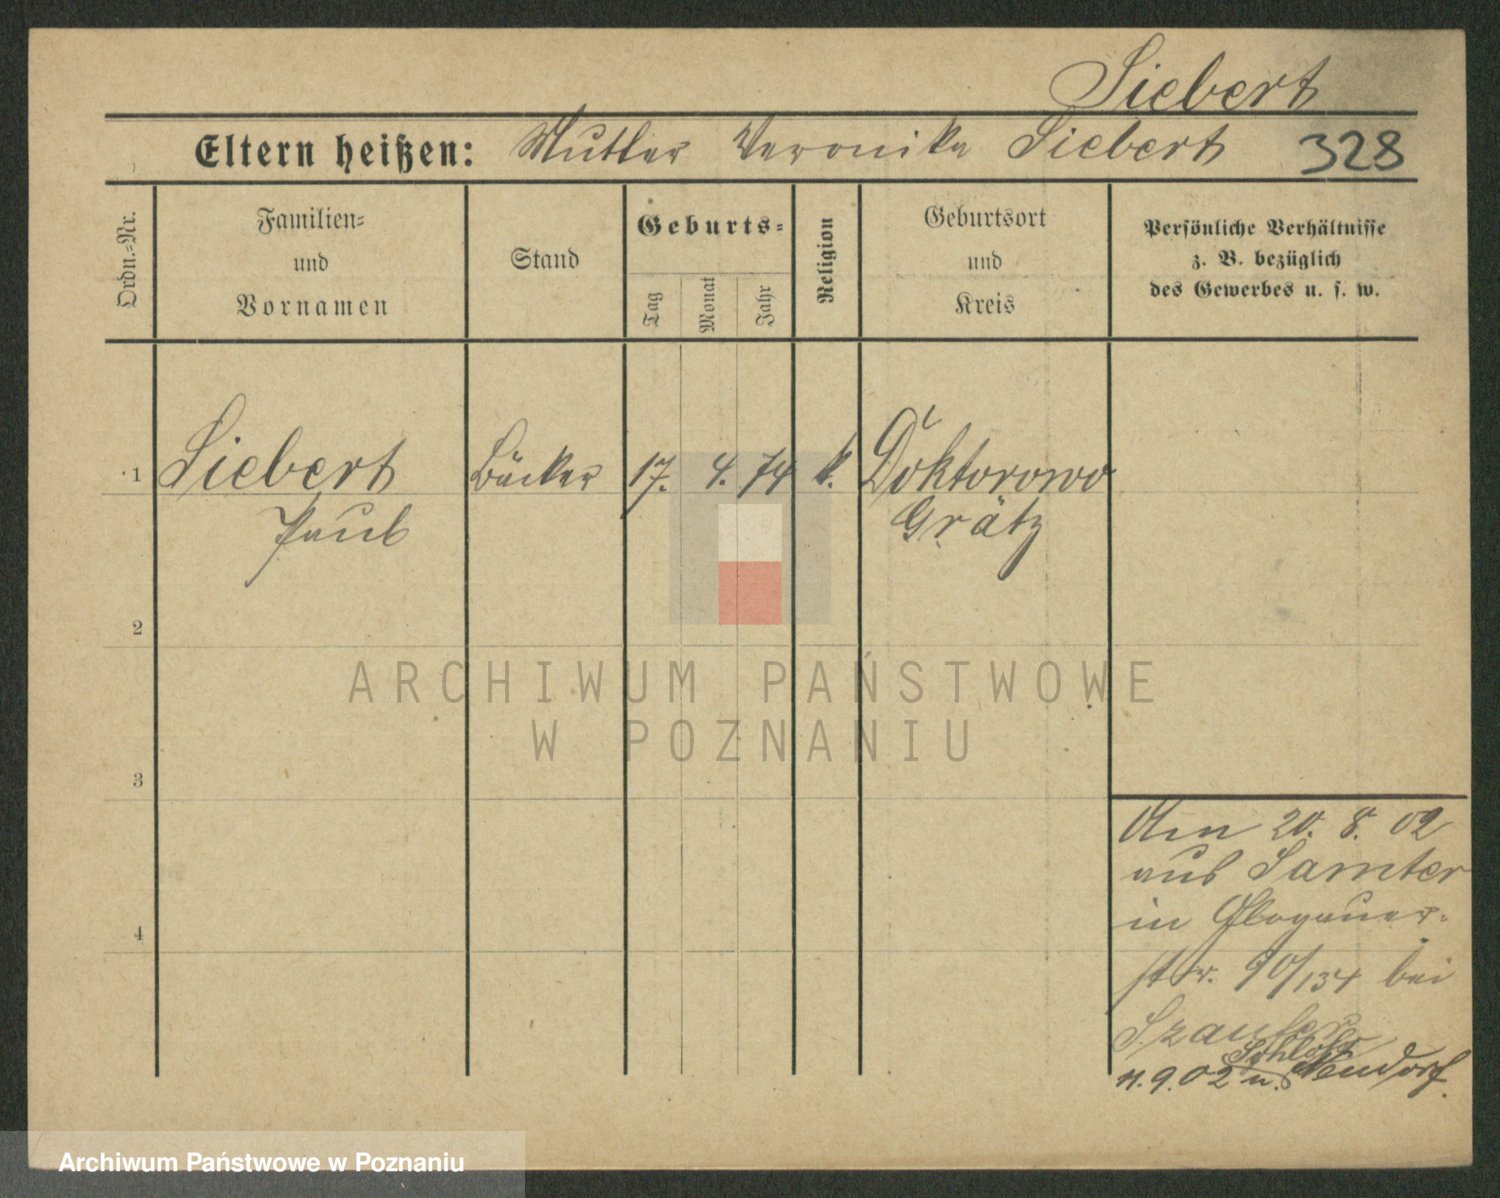 Siebert
Eltern heißen: Mutter Veronika Siebert 328
Ordn.=Nr.
Familien=
und
Vornamen
Stand
Geburts=
Tag
Monat
Jahr
Religion
Geburtsort
und
Kreis
Persönliche Verhältnisse
z. B. bezüglich
des Gewerbes u. s. w.
1 Siebert Bäcker 17. 4. 74 k. Doktorowo
Paul Grätz
2
ARCHIWUM PAŃSTWOWE
W POZNANIU
3
Am 20. 8. 02
aus Samter
in Glogauer-
str. 90/134 bei
Schloß
11.9.02 n. Neudorf.
4
Archiwum Państwowe w Poznaniu